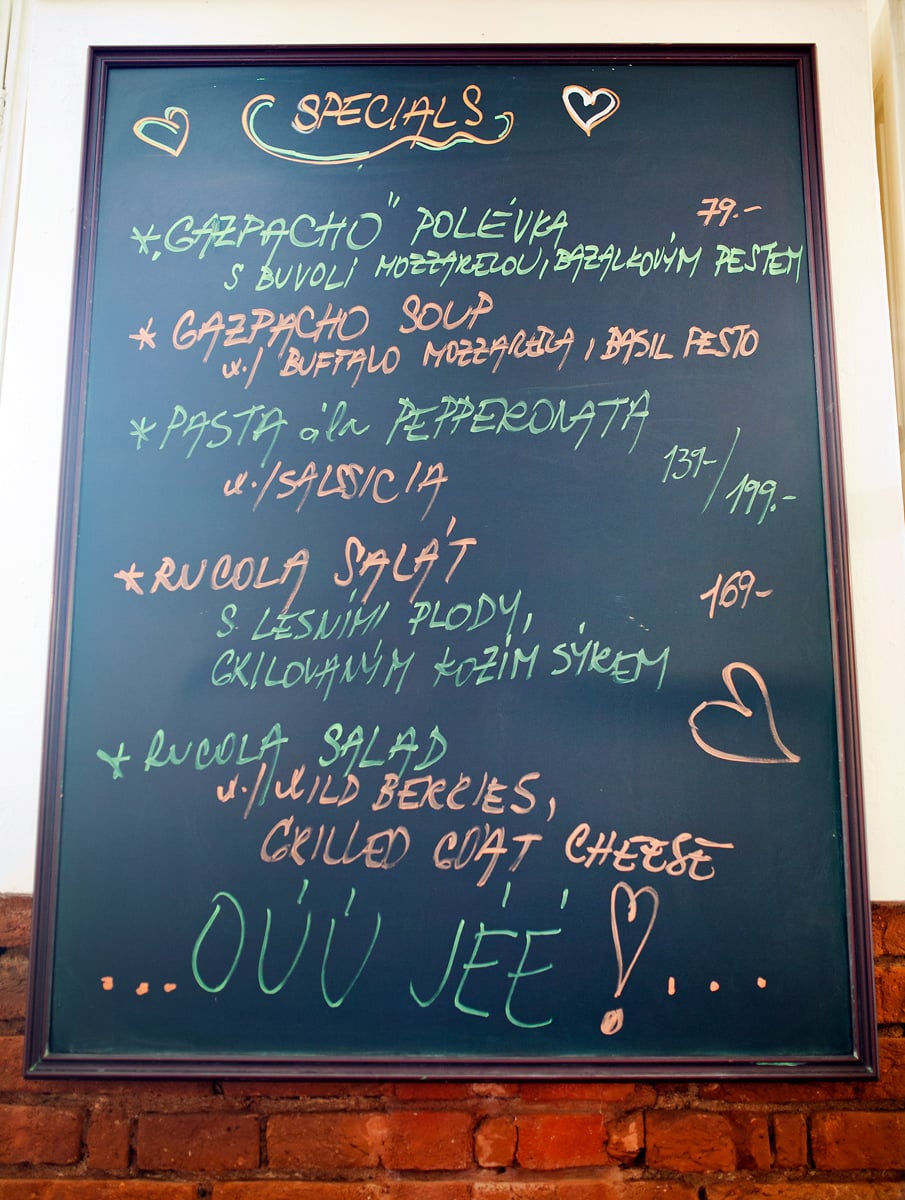 SPECIALS
* „GAZPACHO" POLÉVKA 79.-
S BUVOLÍ MOZZARELOU, BAZALKOVÝM PESTEM
* GAZPACHO SOUP
w./ BUFFALO MOZZARELLA, BASIL PESTO
* PASTA á la PEPPERONATA
139-/199.-
w./SALSICIA
* RUCOLA SALÁT
169-
S LESNÍMI PLODY,
GRILOVANÝM KOZÍM SÝREM
* RUCOLA SALAD
w./WILD BERRIES,
GRILLED GOAT CHEESE
...OÚÚ JÉÉ!...